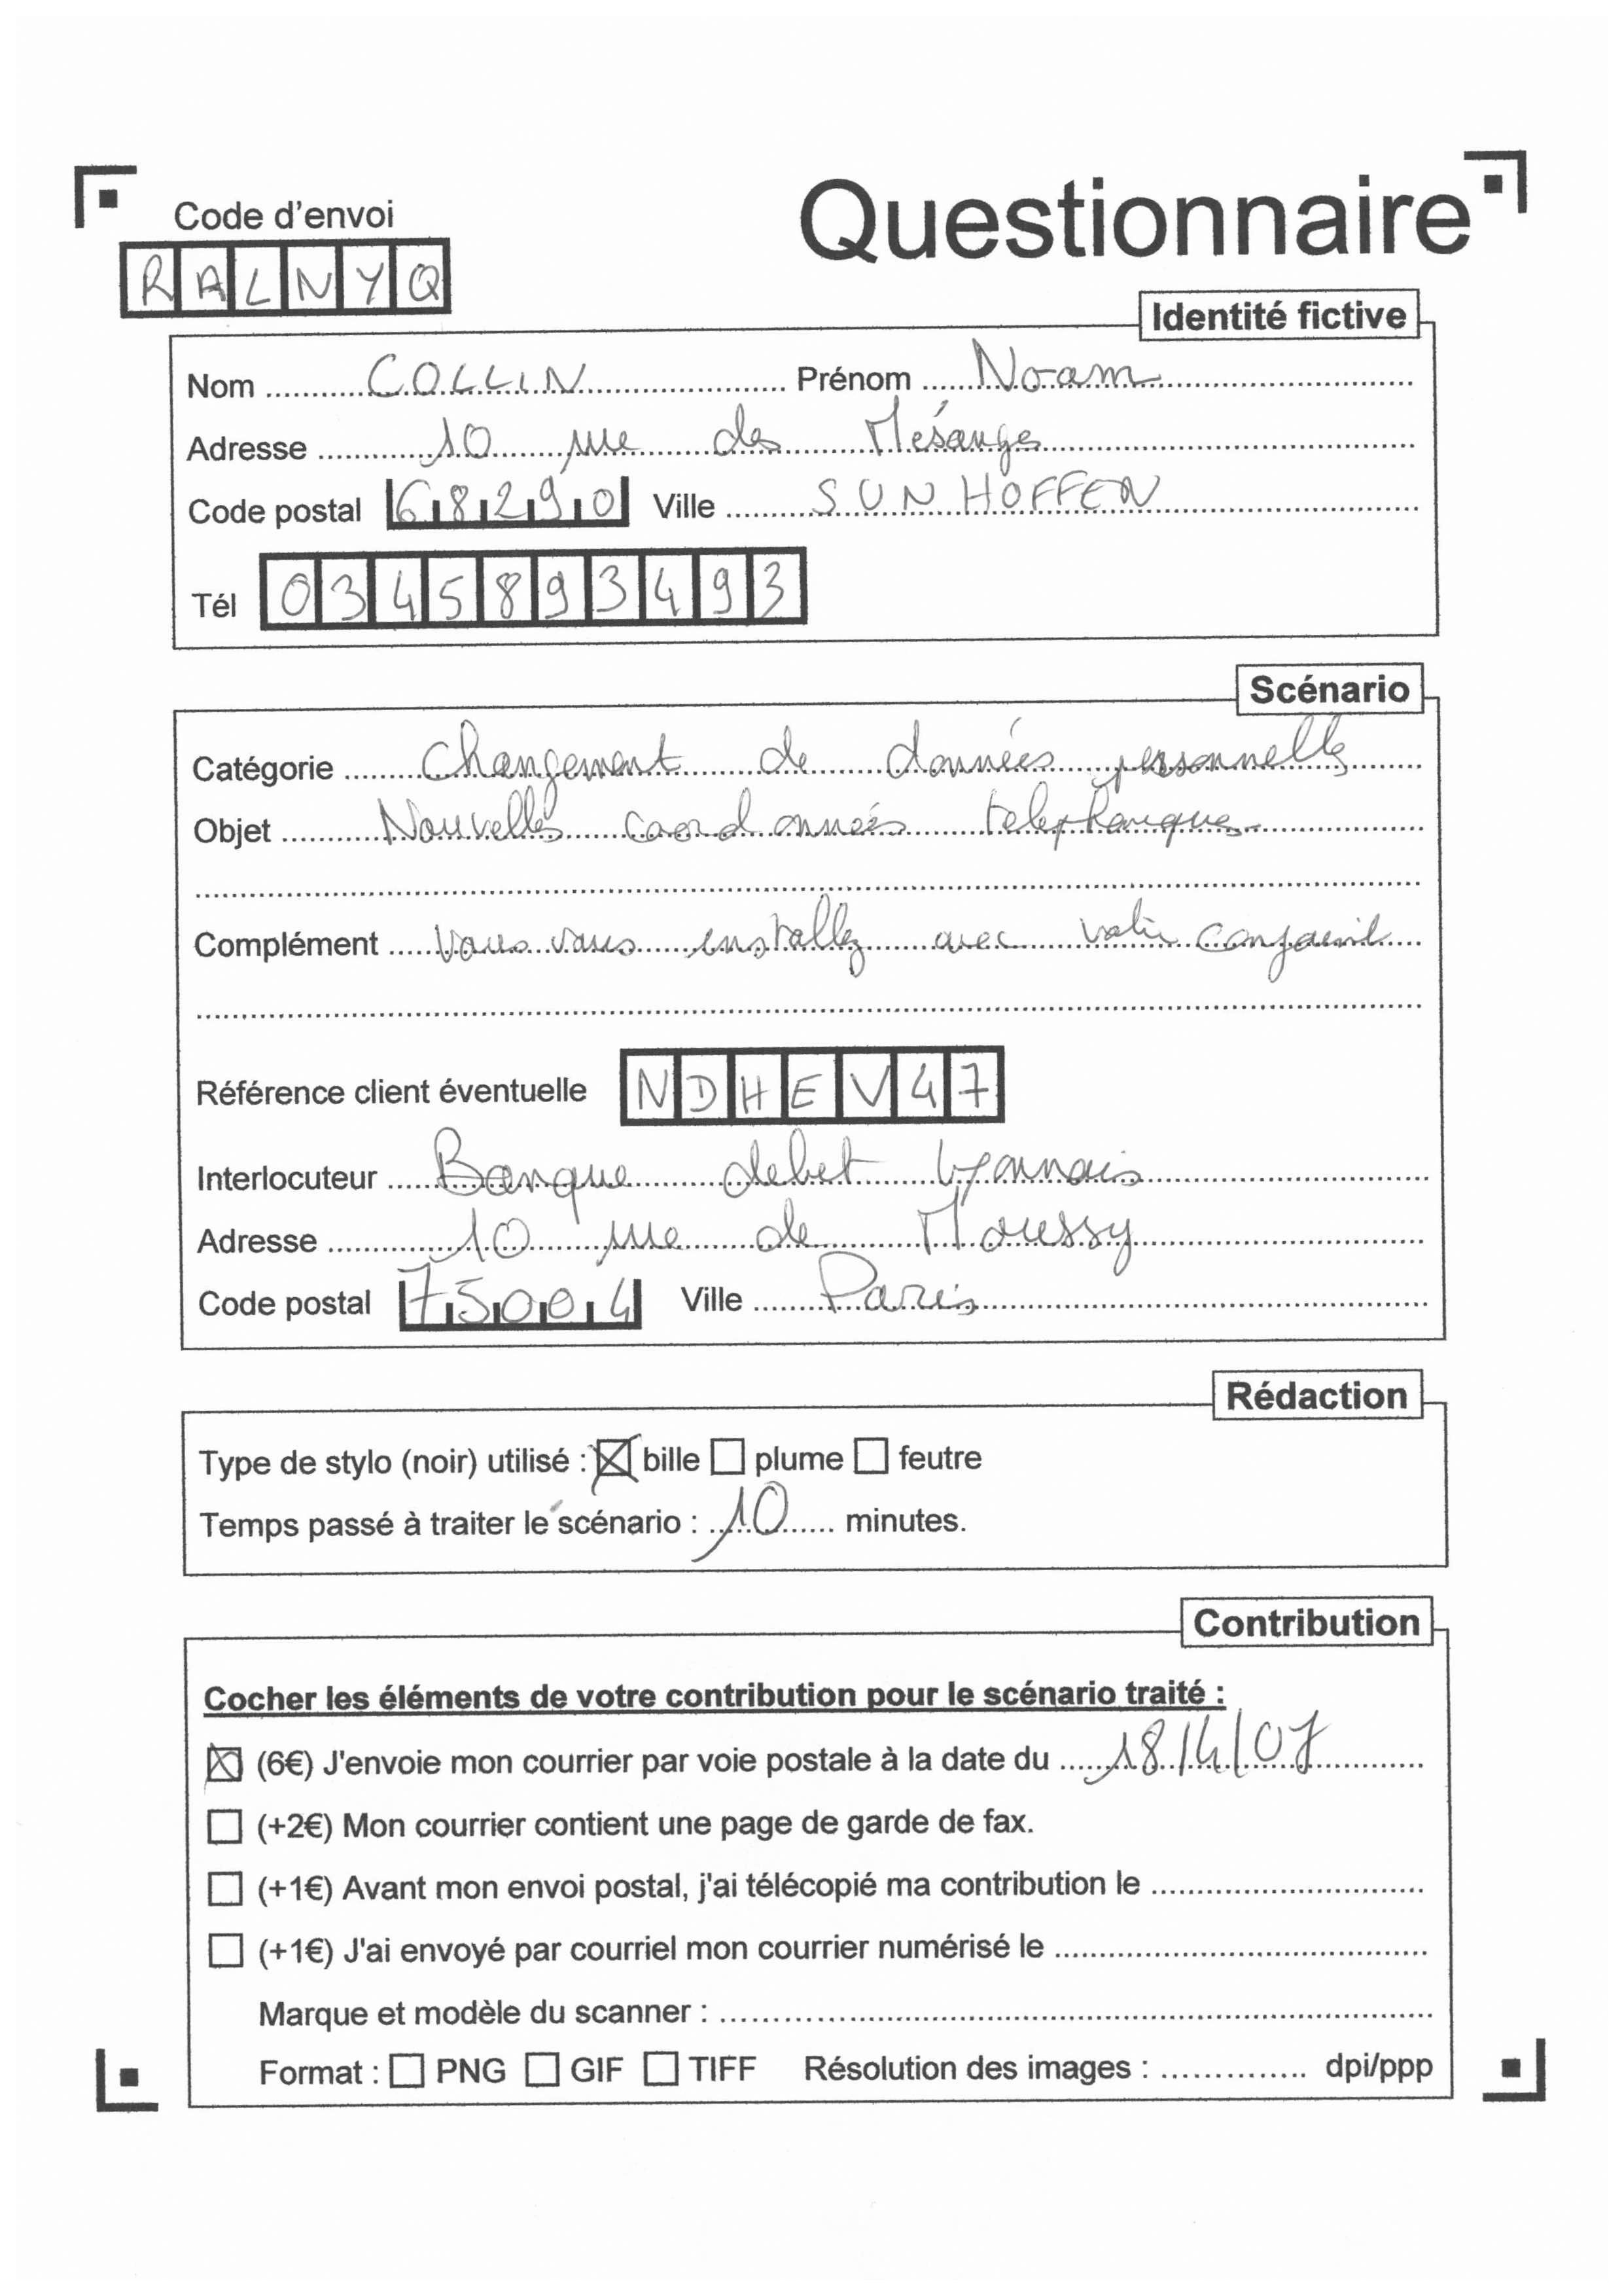 Code d'envoi
Questionnaire
RALNYQ
Identité fictive
Nom COLLIN Prénom Noam
Adresse 10 rue des Mésanges
Code postal 68290 Ville SUNHOFFEN
Tél 0345893493
Scénario
Catégorie Changement de données personnelles
Objet Nouvelles coordonnées telephoniques
Complément Vous vous installez avec votre conjoint
Référence client éventuelle NDHEV47
Interlocuteur Banque debet Lyonnais
Adresse 10 rue de Moussy
Code postal 75004 Ville Paris
Rédaction
Type de stylo (noir) utilisé : ☒ bille ☐ plume ☐ feutre
Temps passé à traiter le scénario : 10 minutes.
Contribution
Cocher les éléments de votre contribution pour le scénario traité :
☒ (6€) J'envoie mon courrier par voie postale à la date du 18/4/07
☐ (+2€) Mon courrier contient une page de garde de fax.
☐ (+1€) Avant mon envoi postal, j'ai télécopié ma contribution le
☐ (+1€) J'ai envoyé par courriel mon courrier numérisé le
Marque et modèle du scanner :
Format : ☐ PNG ☐ GIF ☐ TIFF Résolution des images : dpi/ppp